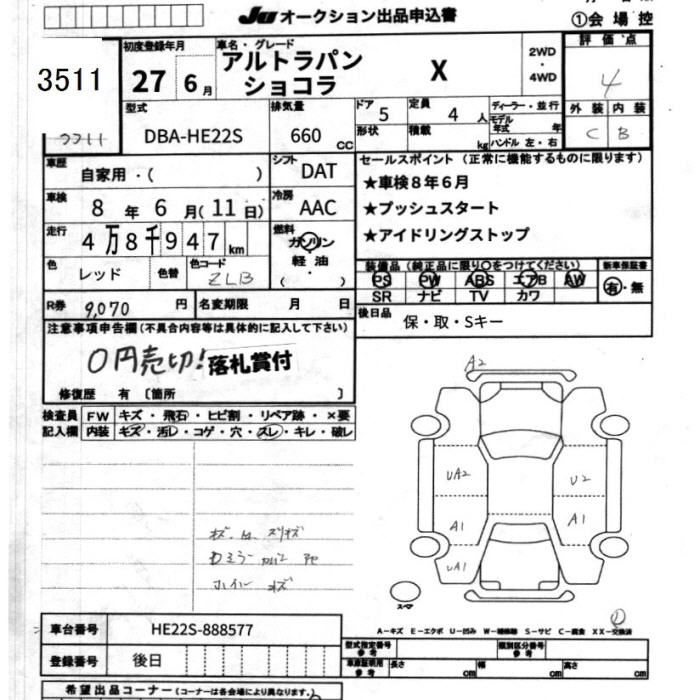 JU オークション出品申込書
①会場控
3511
初度登録年月
27 6月
車名・グレード
アルトラパン
ショコラ
X
2WD
・
4WD
評価点
4
外装 内装
C B
型式
DBA-HE22S
排気量
660 cc
ドア 5
形状
定員 4 人
積載 kg
ディーラー・並行
モデル
年式 年
ハンドル 左・右
車歴
自家用・( )
シフト
DAT
セールスポイント (正常に機能するものに限ります)
★車検8年6月
★プッシュスタート
★アイドリングストップ
車検
8年6月(11日)
冷房
AAC
走行
4万8千947km
燃料
ガソリン
軽油
( ・ )
色
レッド
色替
色コード
ZLB
装備品 (純正品に限り○をつけてください)
PS PW ABS エアB AW
SR ナビ TV カワ
新車保証書
有・無
R券
9,070 円
名変期限 月 日
後日品
保・取・Sキー
注意事項申告欄 (不具合内容等は具体的に記入して下さい)
0円売切! 落札賞付
修復歴 有 〔箇所 〕
検査員
記入欄
FW キズ・飛石・ヒビ割・リペア跡・×要
内装 キズ・汚レ・コゲ・穴・スレ・キレ・破レ
A2
UA2
U2
A1
A1
UA1
スペア
A−キズ E−エクボ U−凹み W−補修跡 S−サビ C−腐食 XX−交換済
車台番号
HE22S-888577
登録番号
後日
型式指定番号
参考
類別区分番号
参考
車庫証明用
参考
長さ cm 幅 cm 高さ cm
希望出品コーナー (コーナーは各会場により異なります。)